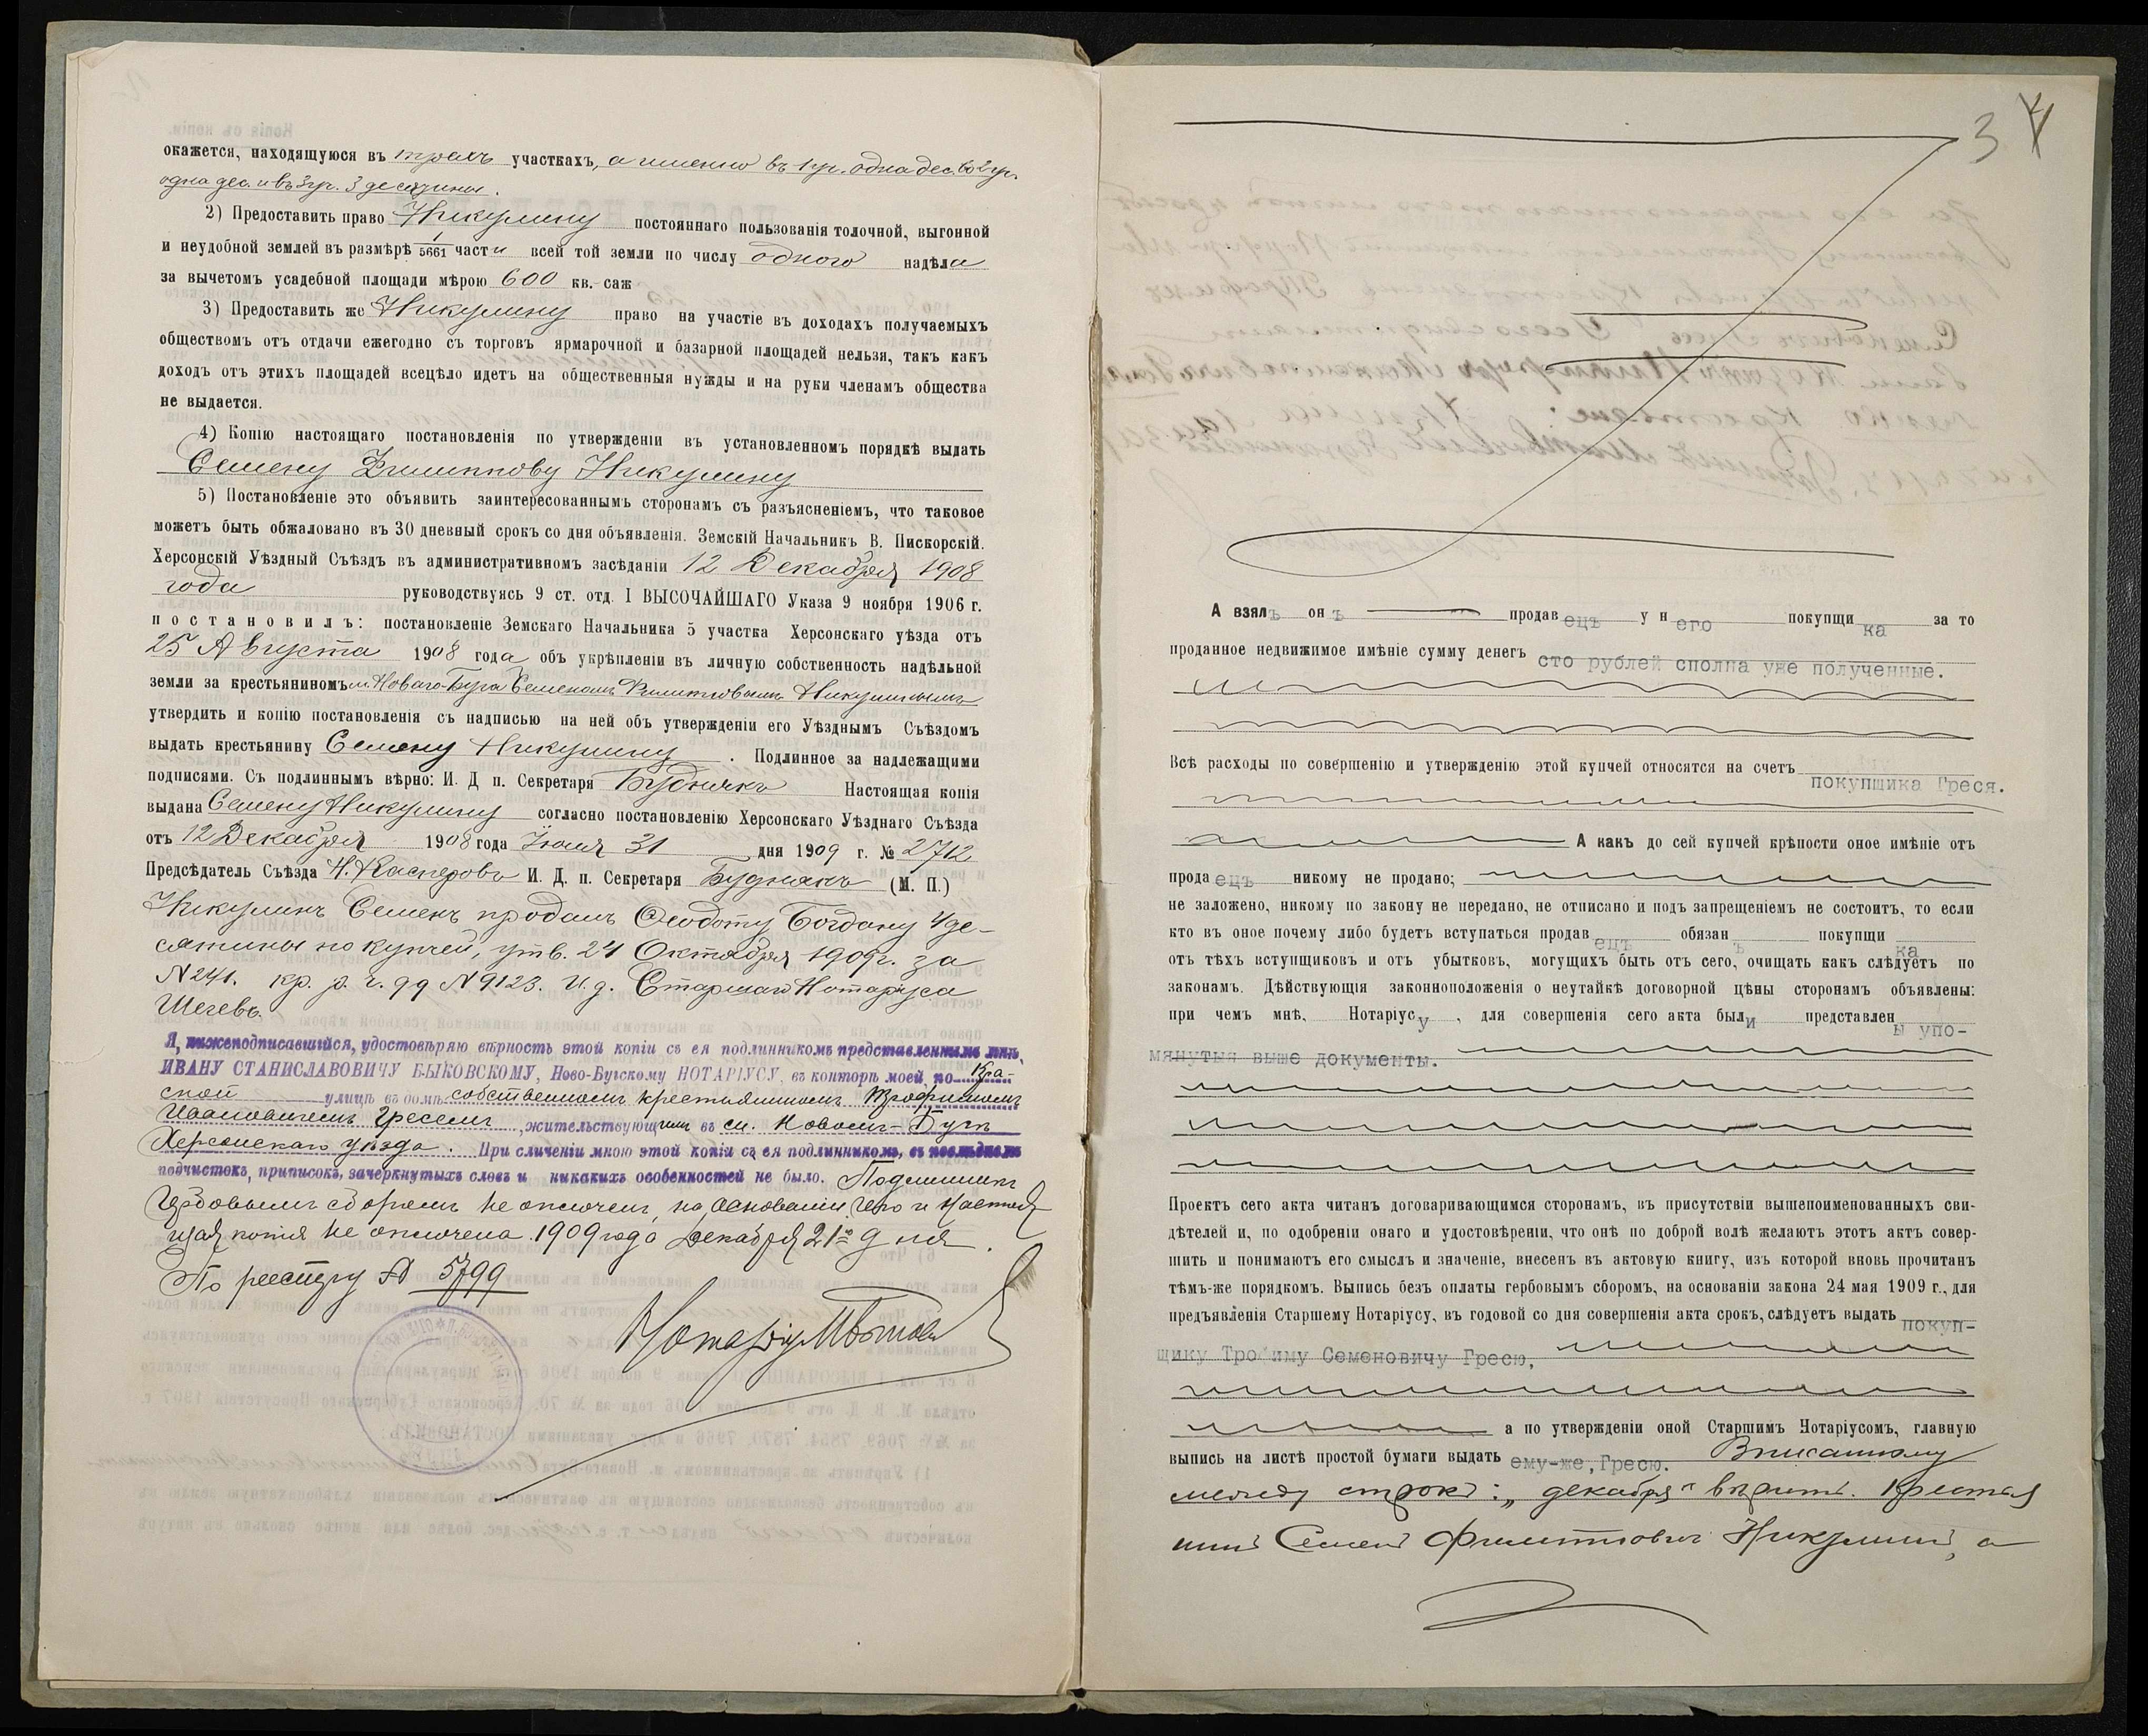 окажется, находящуюся въ трехъ участкахъ, а именно въ 1 гр. одна дес. во 2 гр.
одна дес. и въ 3 гр. 3 десятины.
2) Предоставить право Никулину постояннаго пользованія толочной, выгонной
и неудобной землей въ размѣрѣ 1/5661 части всей той земли по числу одного надѣла
за вычетомъ усадебной площади мѣрою 600 кв. саж
3) Предоставить же Никулину право на участіе въ доходахъ получаемыхъ
обществомъ отъ отдачи ежегодно съ торговъ ярмарочной и базарной площадей нельзя, такъ какъ
доходъ отъ этихъ площадей всецѣло идетъ на общественныя нужды и на руки членамъ общества
не выдается.
4) Копію настоящаго постановленія по утвержденіи въ установленномъ порядкѣ выдать
Семену Филиппову Никулину
5) Постановленіе это объявить заинтересованнымъ сторонамъ съ разъясненіемъ, что таковое
можетъ быть обжаловано въ 30 дневный срокъ со дня объявленія. Земскій Начальникъ В. Пискорскій.
Херсонскій Уѣздный Съѣздъ въ административномъ засѣданіи 12 Декабря 1908
года руководствуясь 9 ст. отд. I ВЫСОЧАЙШАГО Указа 9 ноября 1906 г.
постановилъ: постановленіе Земскаго Начальника 5 участка Херсонскаго уѣзда отъ
25 Августа 1908 года объ укрѣпленіи въ личную собственность надѣльной
земли за крестьяниномъ м. Новаго-Буга Семеномъ Филипповымъ Никулинымъ
утвердить и копію постановленія съ надписью на ней объ утвержденіи его Уѣзднымъ Съѣздомъ
выдать крестьянину Семену Никулину. Подлинное за надлежащими
подписями. Съ подлиннымъ вѣрно: И. Д п. Секретаря Буднякъ Настоящая копія
выдана Семену Никулину согласно постановленію Херсонскаго Уѣзднаго Съѣзда
отъ 12 Декабря 1908 года Іюля 31 дня 1909 г. № 2712
Предсѣдатель Съѣзда Н. Касперовъ И. Д. п. Секретаря Буднякъ (М. П.)
Никулинъ Семенъ продалъ Ѳеодоту Богдану 4 де-
сятины по купчей, утв. 24 Октября 1909 г. за
N 241. кр. р. ч. 99 N 9123. И. д. Старшаго Нотаріуса
Шегевъ.
Я, нижеподписавшійся, удостовѣряю вѣрность этой копіи съ ея подлинникомъ представленнымъ мнѣ,
ИВАНУ СТАНИСЛАВОВИЧУ БЫКОВСКОМУ, Ново-Бугскому НОТАРІУСУ, въ конторѣ моей, по
улицѣ въ домѣ собственномъ крестьяниномъ Трофимомъ
Ивановичемъ Гресемъ, жительствующимъ въ м. Новомъ-Бугѣ
Херсонскаго уѣзда. При сличеніи мною этой копіи съ ея подлинникомъ, въ послѣднемъ
подчистокъ, приписокъ, зачеркнутыхъ словъ и никакихъ особенностей не было. Подлинникъ
Гербовымъ сборомъ не оплоченъ, на основаніи чего и настоя
щая копія не оплочена. 1909 года Декабря 21го дня.
По реестру № 5799
Нотаріусъ
3 4
А взялъ онъ продавецъ у него покупщика за то
проданное недвижимое имѣніе сумму денегъ сто рублей сполна уже полученные.
Всѣ расходы по совершенію и утвержденію этой купчей относятся на счетъ покупщика Греся.
А какъ до сей купчей крѣпости оное имѣніе отъ
продаецъ никому не продано;
не заложено, никому по закону не передано, не отписано и подъ запрещеніемъ не состоитъ, то если
кто въ оное почему либо будетъ вступаться продавецъ обязанъ покупщика
отъ тѣхъ вступщиковъ и отъ убытковъ, могущихъ быть отъ сего, очищать какъ слѣдуетъ по
законамъ. Дѣйствующія законноположенія о неутайкѣ договорной цѣны сторонамъ объявлены:
при чемъ мнѣ, Нотаріусу, для совершенія сего акта были представлены упо-
мянутыя выше документы.
Проектъ сего акта читанъ договаривающимся сторонамъ, въ присутствіи вышепоименованныхъ сви-
дѣтелей и, по одобреніи онаго и удостовѣреніи, что онѣ по доброй волѣ желаютъ этотъ актъ совер-
шить и понимаютъ его смыслъ и значеніе, внесенъ въ актовую книгу, изъ которой вновь прочитанъ
тѣмъ-же порядкомъ. Выпись безъ оплаты гербовымъ сборомъ, на основаніи закона 24 мая 1909 г., для
предъявленія Старшему Нотаріусу, въ годовой со дня совершенія акта срокъ, слѣдуетъ выдать покуп-
щику Трофиму Семеновичу Гресю,
а по утвержденіи оной Старшимъ Нотаріусомъ, главную
выпись на листѣ простой бумаги выдать ему-же, Гресю. Вписанному
между строкъ: „декабря" вѣрить. Крестья
нинъ Семенъ Филипповичъ Никулинъ, а